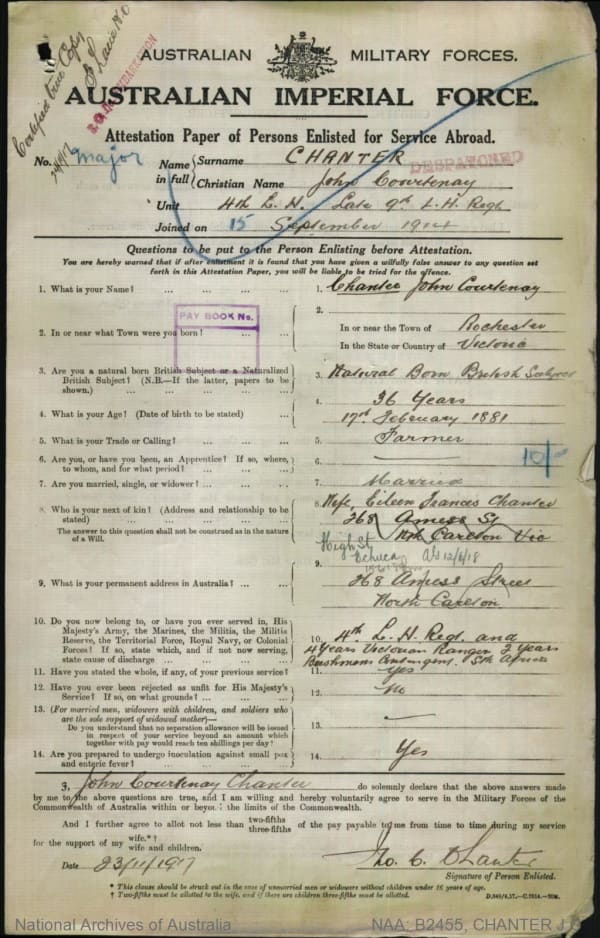 Certified true Copy
AUSTRALIAN MILITARY FORCES.
AUSTRALIAN IMPERIAL FORCE.
Attestation Paper of Persons Enlisted for Service Abroad.
No. Major
Name in full { Surname CHANTER
DESPATCHED
Christian Name John Courtenay
Unit 4th L. H. Late 9th L. H. Regt
Joined on 15 September 1914
Questions to be put to the Person Enlisting before Attestation.
You are hereby warned that if after enlistment it is found that you have given a wilfully false answer to any question set
forth in this Attestation Paper, you will be liable to be tried for the offence.
1. What is your Name? ... ... ... ... 1. Chanter John Courtenay
PAY BOOK No.
2.
2. In or near what Town were you born? ... ... In or near the Town of Rochester
In the State or Country of Victoria
3. Are you a natural born British Subject or a Naturalized
British Subject? (N.B.—If the latter, papers to be
shown.) ... ... ... ... 3. Natural Born British Subject
4. What is your Age? (Date of birth to be stated) ... 4. 36 Years
17th February 1881
5. What is your Trade or Calling? ... ... ... 5. Farmer
6. Are you, or have you been, an Apprentice? If so, where,
to whom, and for what period? ... ... ... 6. —
10/-
7. Are you married, single, or widower? ... ... ... 7. Married
8. Who is your next of kin? (Address and relationship to be
stated) ... ... ... ... 8. Wife, Eileen Frances Chanter
The answer to this question shall not be construed as in the nature
of a Will.
368 Amess St
Nth Carlton Vic
High St
Echuca
12/6/18
9. What is your permanent address in Australia? ... ... 9. 368 Amess Street
North Carlton
10. Do you now belong to, or have you ever served in, His
Majesty's Army, the Marines, the Militia, the Militia
Reserve, the Territorial Force, Royal Navy, or Colonial
Forces? If so, state which, and if not now serving,
state cause of discharge ... ... ... 10. 4th. L. H. Regt. and
4 years Victorian Ranger 2 years
Bushmens Contingent. Sth Africa
11. Have you stated the whole, if any, of your previous service? 11. Yes
12. Have you ever been rejected as unfit for His Majesty's
Service? If so, on what grounds? ... ... ... 12. No
13. (For married men, widowers with children, and soldiers who
are the sole support of widowed mother)—
Do you understand that no separation allowance will be issued
in respect of your service beyond an amount which
together with pay would reach ten shillings per day? 13. —
14. Are you prepared to undergo inoculation against small pox
and enteric fever? ... ... ... ... 14. Yes
I, John Courtenay Chanter do solemnly declare that the above answers made
by me to the above questions are true, and I am willing and hereby voluntarily agree to serve in the Military Forces of the
Commonwealth of Australia within or beyond the limits of the Commonwealth.
And I further agree to allot not less than two-fifths three-fifths of the pay payable to me from time to time during my service
for the support of my wife.*† wife and children.
Date 23/11/1917
Jno. C. Chanter
Signature of Person Enlisted.
* This clause should be struck out in the case of unmarried men or widowers without children under 16 years of age.
† Two-fifths must be allotted to the wife, and if there are children three-fifths must be allotted.
National Archives of Australia
NAA: B2455, CHANTER J C